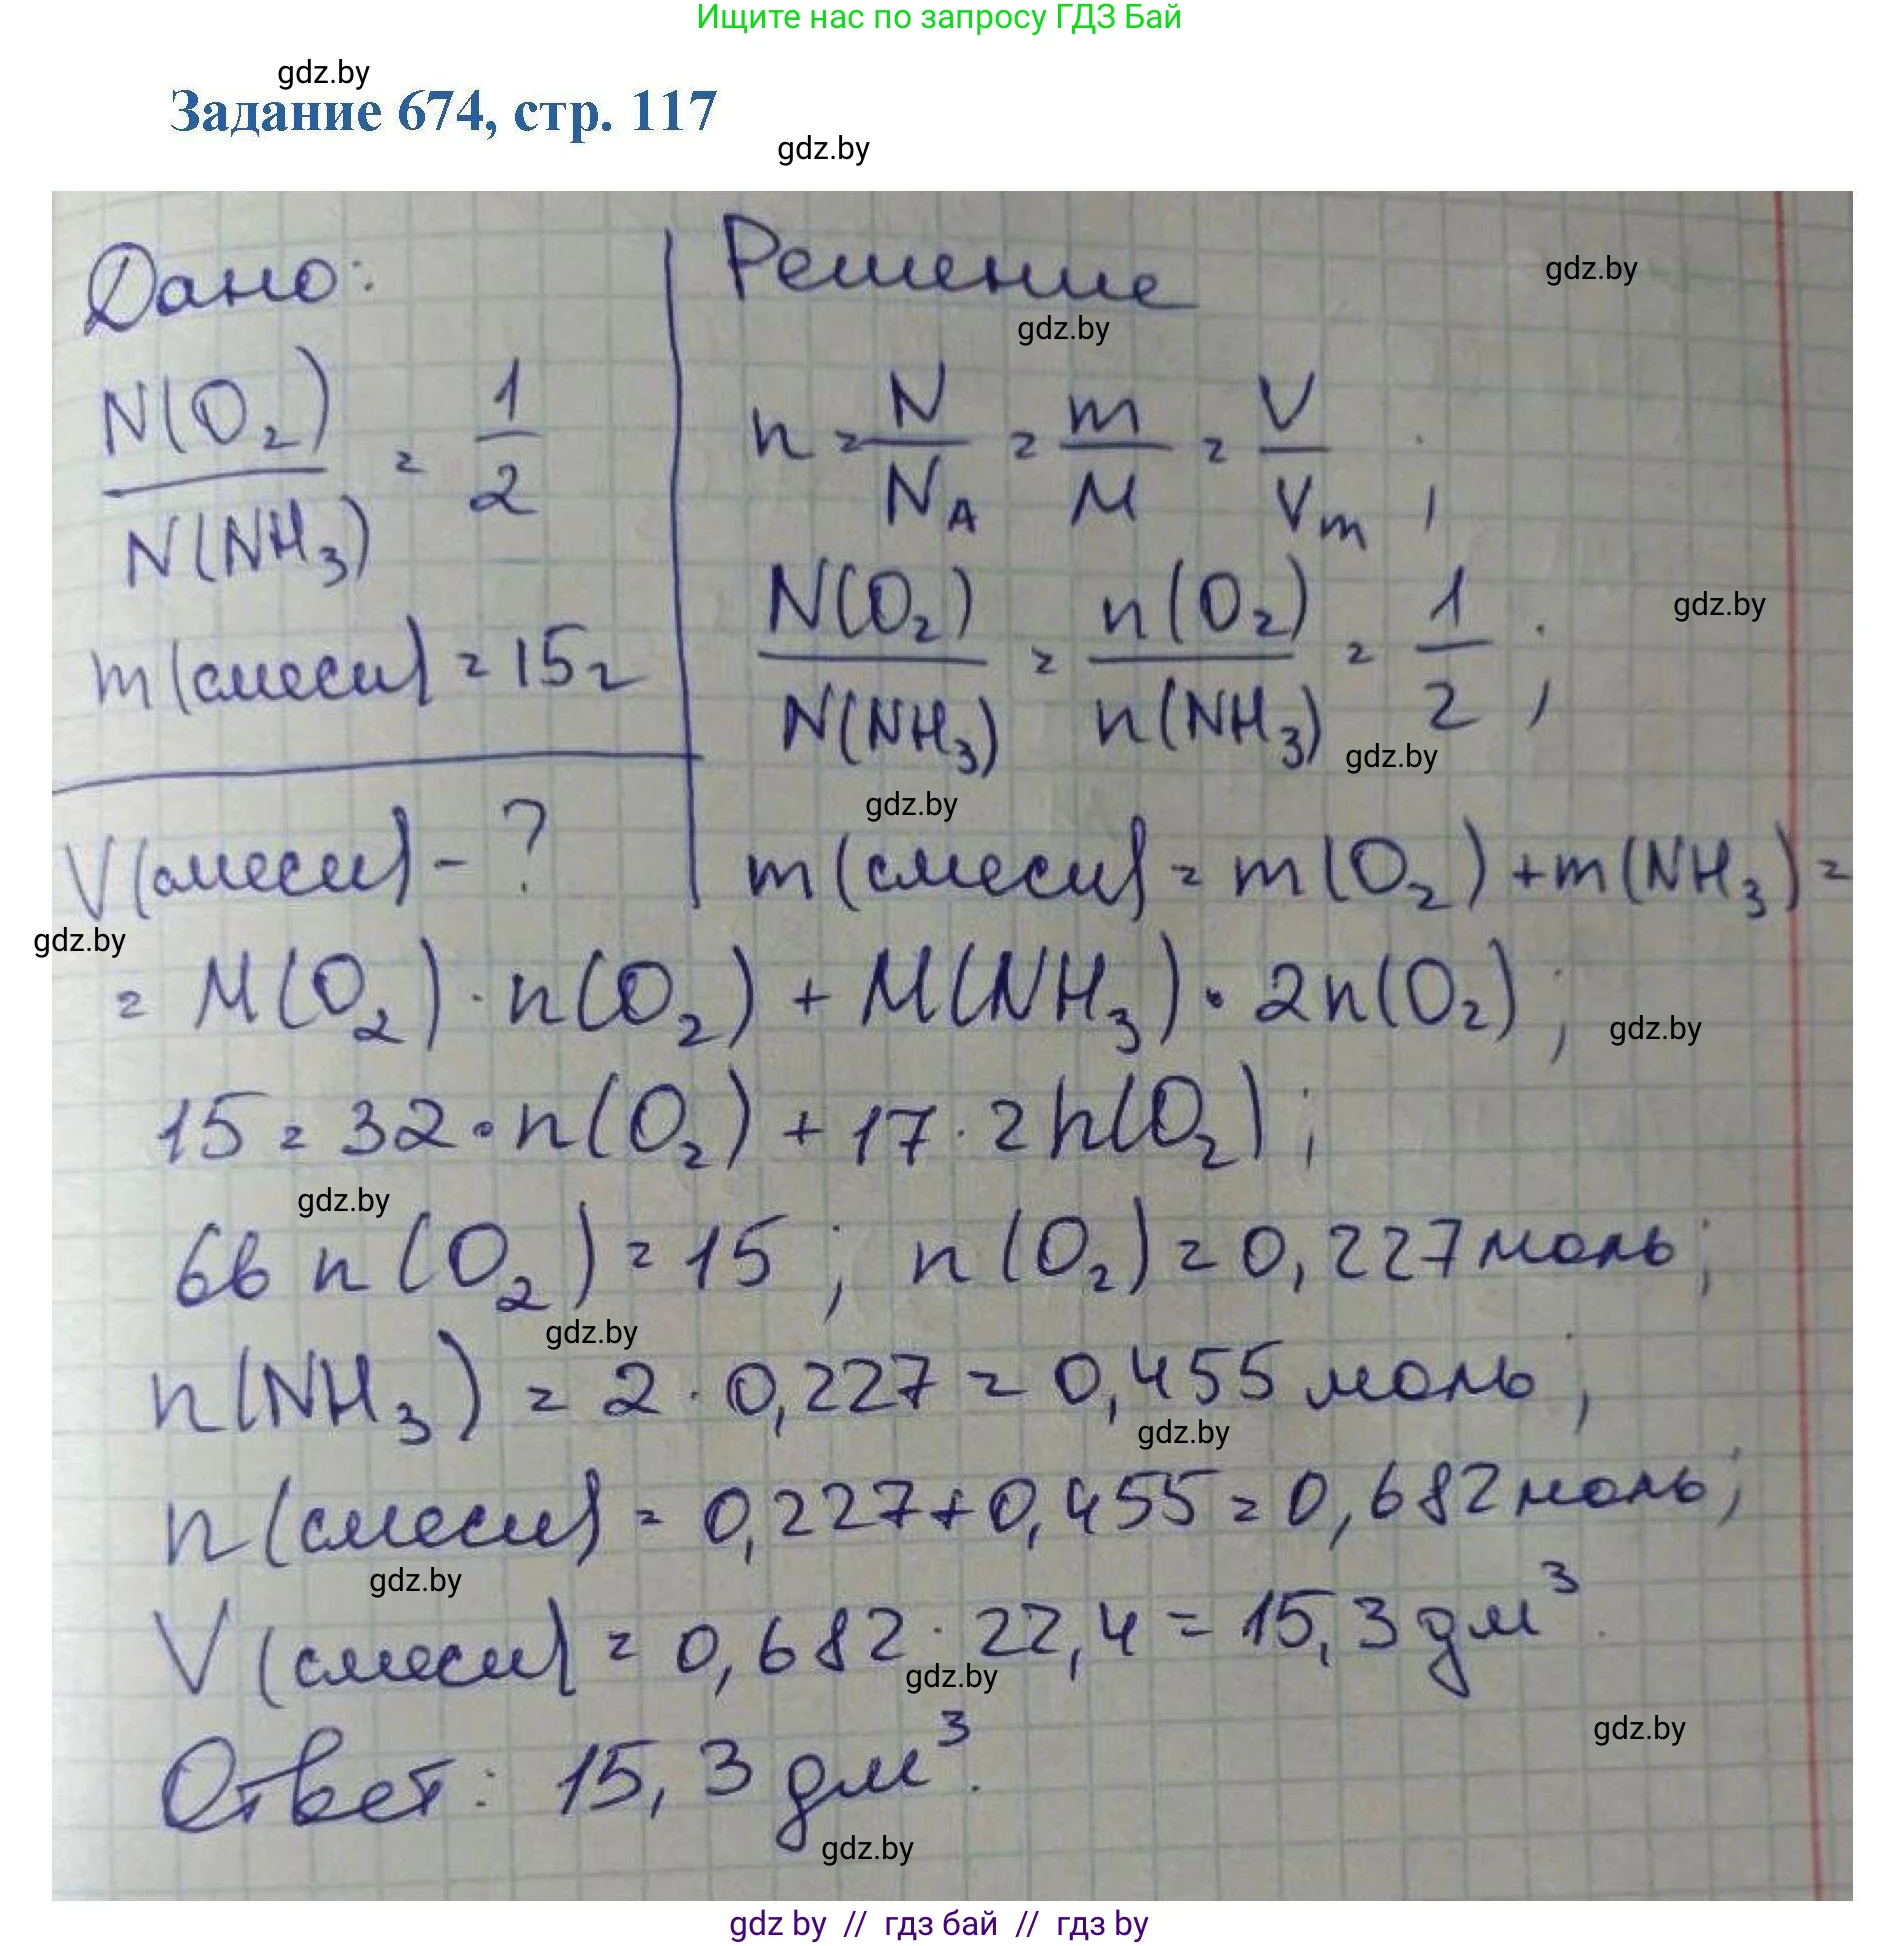 Ищите нас по запросу ГДЗ Бай
gdz.by
Задание 674, стр. 117
gdz.by
Дано:
N(O₂)/N(NH₃) = 1/2
m(смеси) = 15г
V(смеси) - ?
Решение
gdz.by
gdz.by
n = N/N_A = m/M = V/V_m ;
N(O₂)/N(NH₃) = n(O₂)/n(NH₃) = 1/2 ;
gdz.by
gdz.by
gdz.by
m(смеси) = m(O₂) + m(NH₃) =
gdz.by
= M(O₂) · n(O₂) + M(NH₃) · 2n(O₂) ;
gdz.by
15 = 32 · n(O₂) + 17 · 2n(O₂) ;
gdz.by
66 n(O₂) = 15 ; n(O₂) = 0,227 моль ;
gdz.by
n(NH₃) = 2 · 0,227 = 0,455 моль ;
gdz.by
n(смеси) = 0,227 + 0,455 = 0,682 моль ;
gdz.by
V(смеси) = 0,682 · 22,4 = 15,3 дм³.
gdz.by
gdz.by
Ответ: 15,3 дм³.
gdz.by
gdz by // гдз бай // гдз by